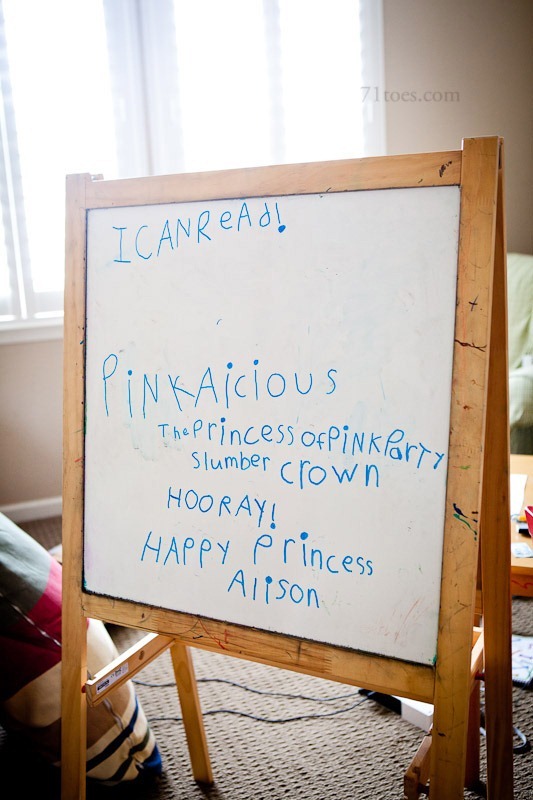 71toes.com
I CAN ReAd!
PiNKAicious
The Princess of PiNK ParTY
Slumber crown
HOORAY!
HAPPY Princess
Alison